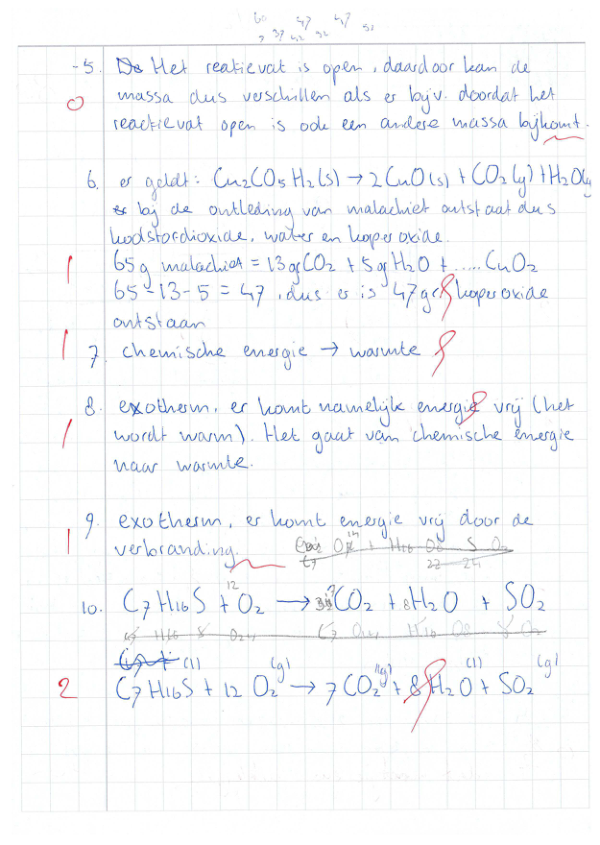 47 47
37 42 32
-5. Het reatievat is open, daardoor kan de
0
massa dus verschillen als er bijv. doordat het
reactievat open is ook een andere massa bijkomt.
6. er geldt: Cu2CO5H2(s) → 2CuO(s) + CO2(g) + H2O(g)
bij de ontleding van malachiet ontstaat dus
koolstofdioxide, water en koperoxide.
1
65g malachiet = 13gCO2 + 5gH2O + ..... CuO2
65-13-5 = 47, dus er is 47gr koperoxide
ontstaan
1
7. chemische energie → warmte
8. exotherm, er komt namelijk energie vrij (het
1
wordt warm). Het gaat van chemische energie
naar warmte.
9. exotherm, er komt energie vrij door de
1
verbranding.
12
10. C7H16S + O2 → 7CO2 + 8H2O + SO2
(l) (g) (g) (l) (g)
2
C7H16S + 12 O2 → 7 CO2 + 8 H2O + SO2